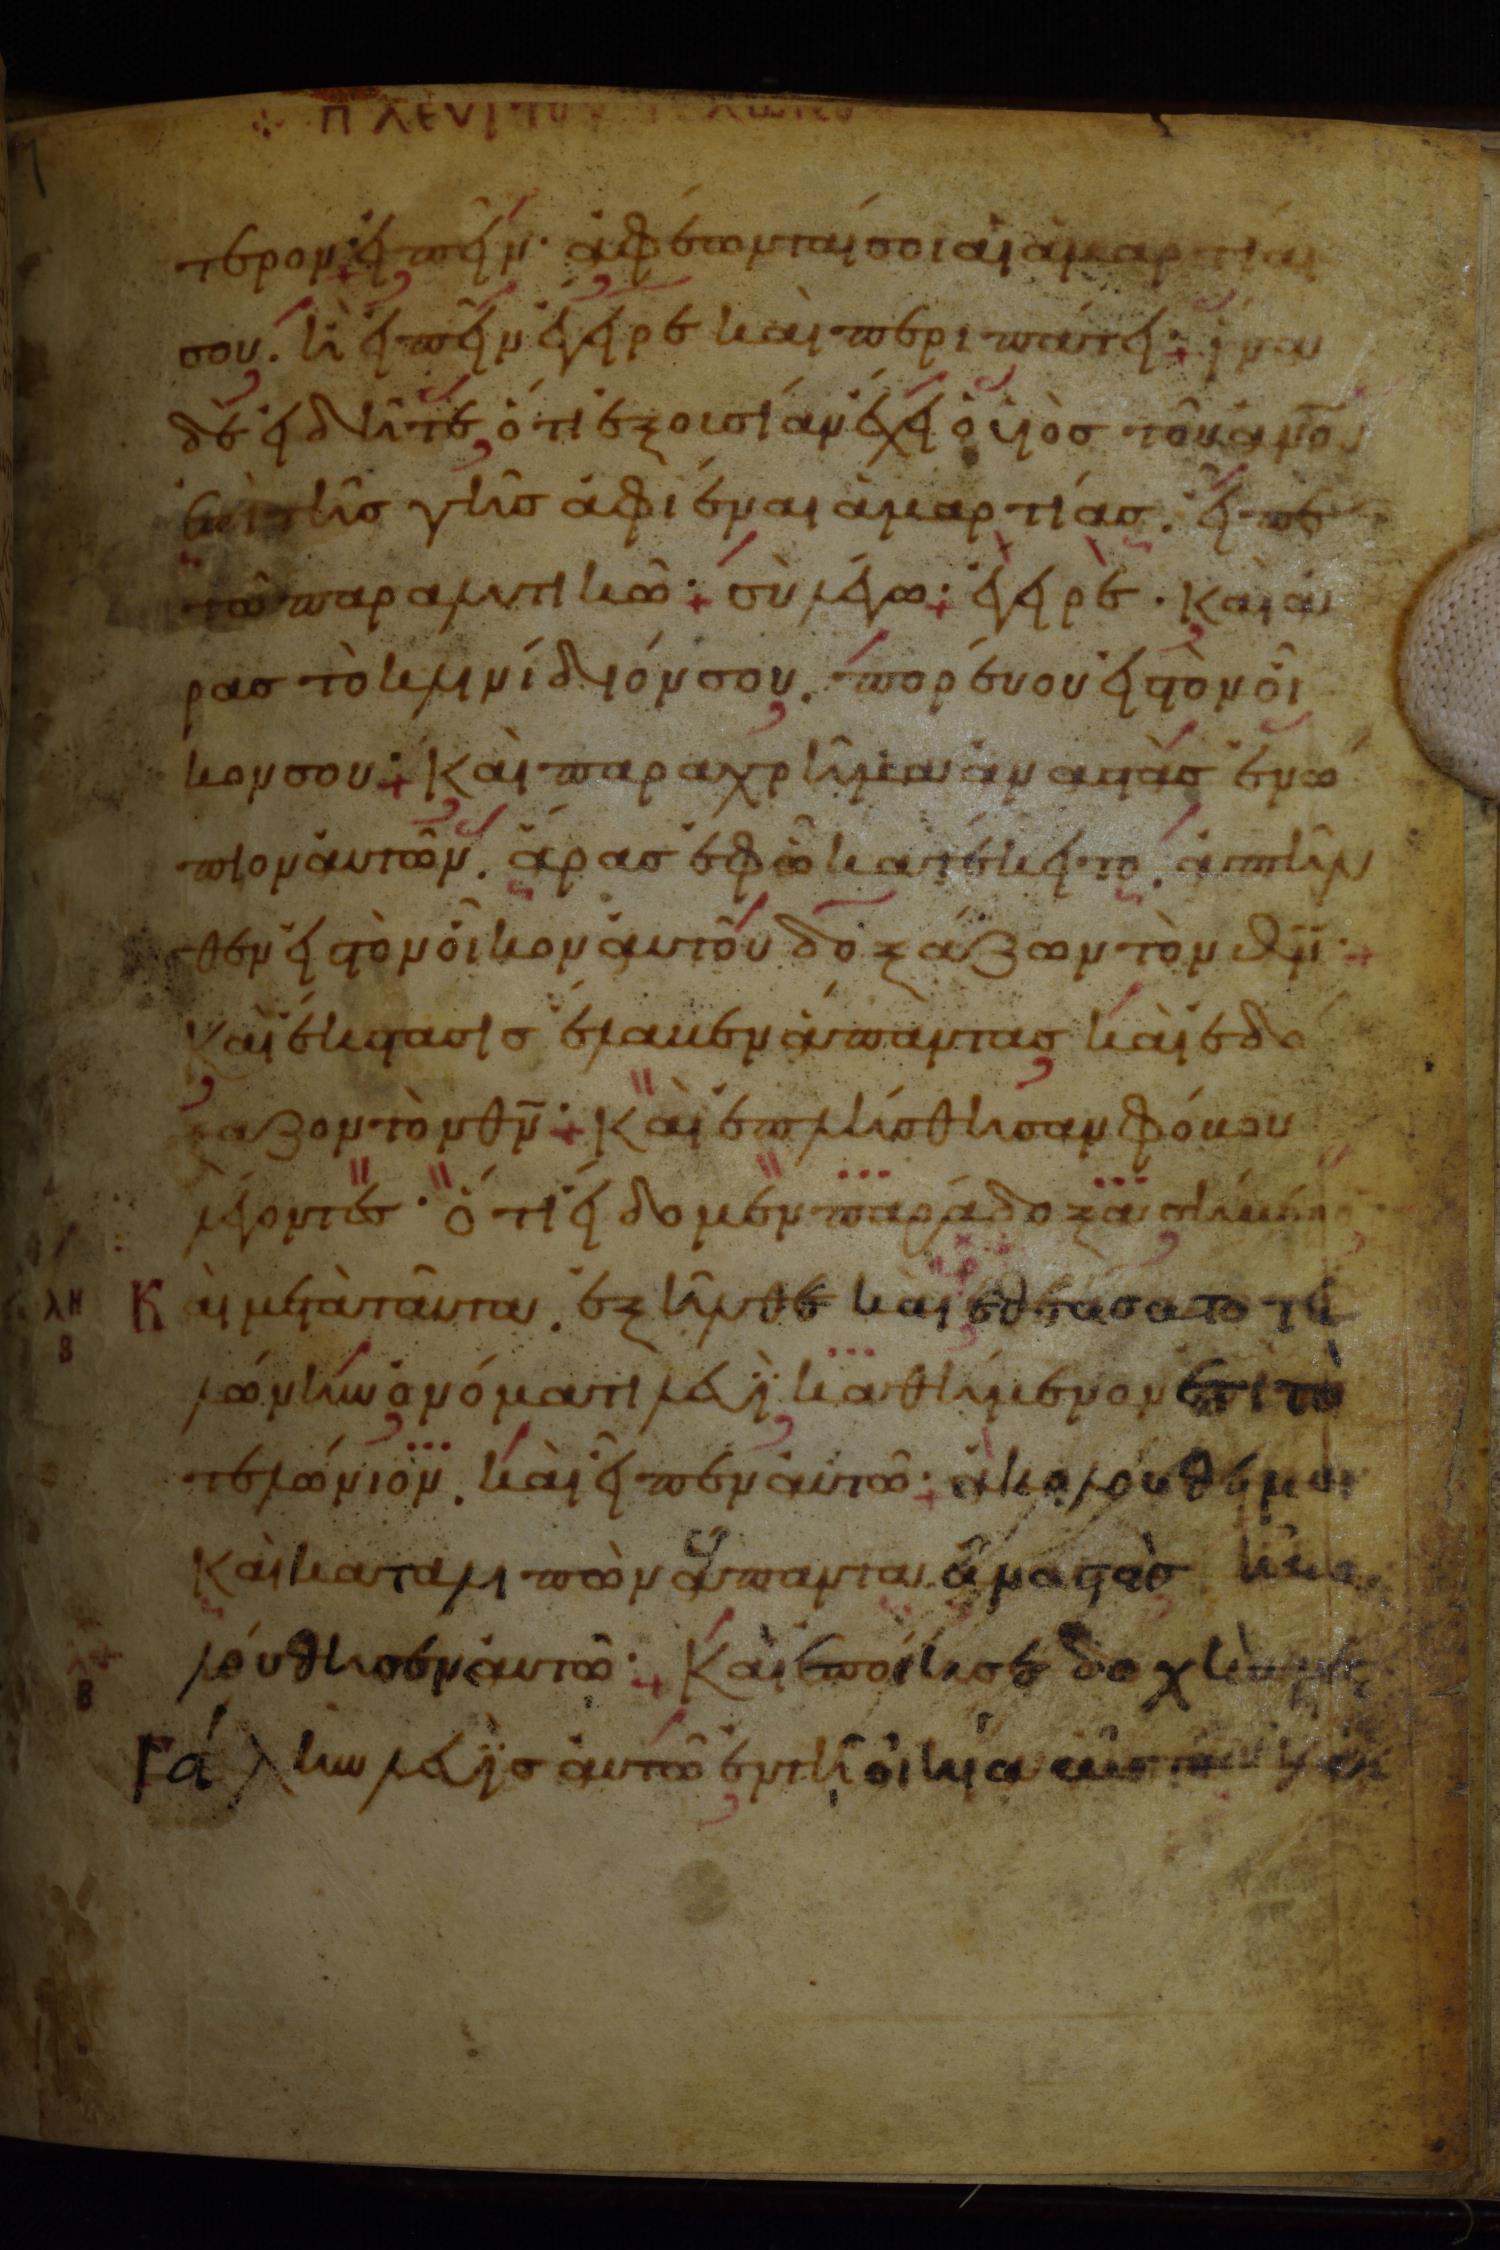 τερον εἰπεῖν· ἀφέωνταί σοι αἱ ἁμαρτίαι
σου. ἢ εἰπεῖν ἔγειρε καὶ περιπάτει· ἵνα
δὲ εἰδῆτε ὅτι ἐξουσίαν ἔχει ὁ υἱὸς τοῦ ἀνου
ἐπὶ τῆς γῆς ἀφιέναι ἁμαρτίας. εἶπε
τῶ παραλυτικῶ· σὺ λέγω· ἔγειρε· καὶ ἄ
ρας τὸ κλινίδιόν σου. πορεύου εἰς τὸν οἶ
κον σου· καὶ παραχρῆμα ἀναστὰς ἐνώ
πιον αὐτῶν. ἄρας ἐφ' ὧ κατέκειτο. ἀπῆλ
θεν εἰς τὸν οἶκον αὐτοῦ δοξάζων τὸν θν·
καὶ ἔκστασις ἔλαβεν ἅπαντας καὶ ἐδό
ξαζον τὸν θν· καὶ ἐπλήσθησαν φόβου
λέγοντες· ὅτι εἴδομεν παράδοξα σήμερον
λη β Καὶ μετὰ ταῦτα. ἐξῆλθε καὶ ἐθεάσατο τε
λώνην ὀνόματι λευῒ καθήμενον ἐπὶ τὸ
τελώνιον. καὶ εἶπεν αὐτῶ· ἀκολούθει μοι
καὶ καταλιπὼν ἅπαντα. ἀναστὰς ἠκο
λούθησεν αὐτῶ· καὶ ἐποίησε δοχὴν με
γάλην λευῒς αὐτῶ ἐν τῆ οἰκία